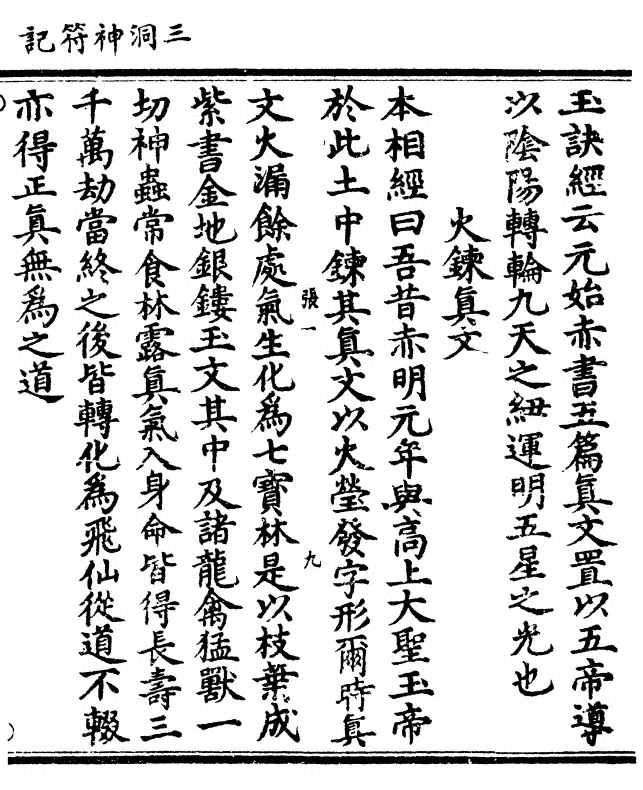 三洞神符記
玉訣經云元始赤書五篇眞文置以五帝導
以陰陽轉輪九天之紐運明五星之光也
火鍊眞文
本相經曰吾昔赤明元年與高上大聖玉帝
於此土中鍊其眞文以火瑩發字形爾時眞
文火漏餘處氣生化爲七寶林是以枝葉成
張一
九
紫書金地銀鏤玉文其中及諸龍禽猛獸一
切神蟲常食林露眞氣入身命皆得長壽三
千萬劫當終之後皆轉化爲飛仙從道不輟
亦得正眞無爲之道